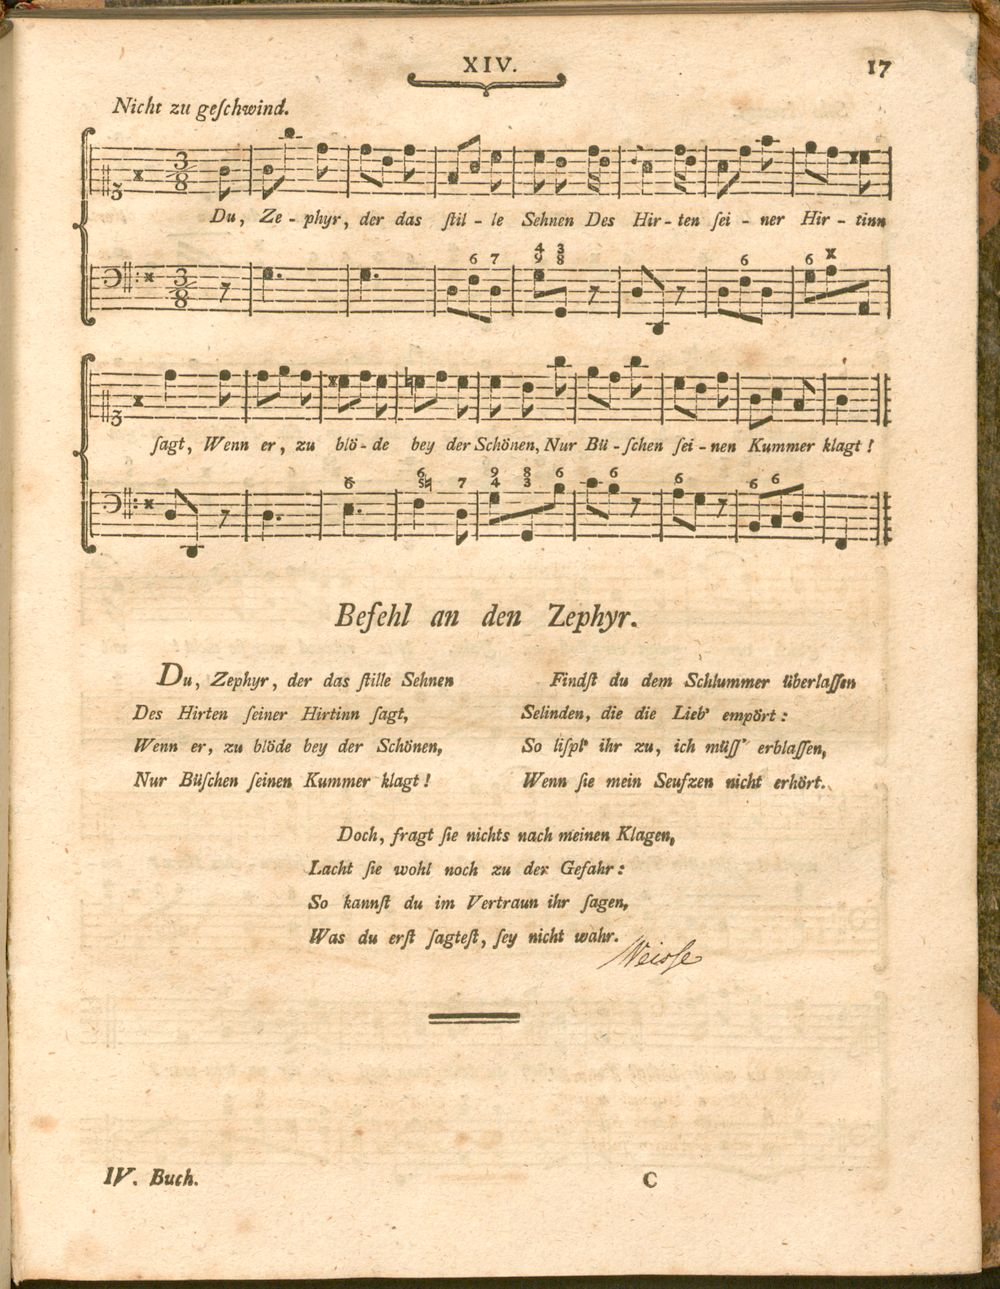 XIV.
17
Nicht zu geſchwind.
3
8
Du, Ze - phyr, der das ſtil - le Sehnen Des Hir - ten ſei - ner Hir - tinn
4 3
6 7 9 8 6 6 x
3
8
ſagt, Wenn er, zu blö - de bey der Schönen, Nur Bü - ſchen ſei - nen Kummer klagt!
6 9 8 6 6 6
6 5♮ 7 4 3 6 6
Befehl an den Zephyr.
Du, Zephyr, der das ſtille Sehnen
Des Hirten ſeiner Hirtinn ſagt,
Wenn er, zu blöde bey der Schönen,
Nur Büſchen ſeinen Kummer klagt!
Findſt du dem Schlummer überlaſſen
Selinden, die die Lieb' empört:
So liſpl' ihr zu, ich müſſ' erblaſſen,
Wenn ſie mein Seufzen nicht erhört.
Doch, fragt ſie nichts nach meinen Klagen,
Lacht ſie wohl noch zu der Gefahr:
So kannſt du im Vertraun ihr ſagen,
Was du erſt ſagteſt, ſey nicht wahr.
Weisſe
IV. Buch.
C